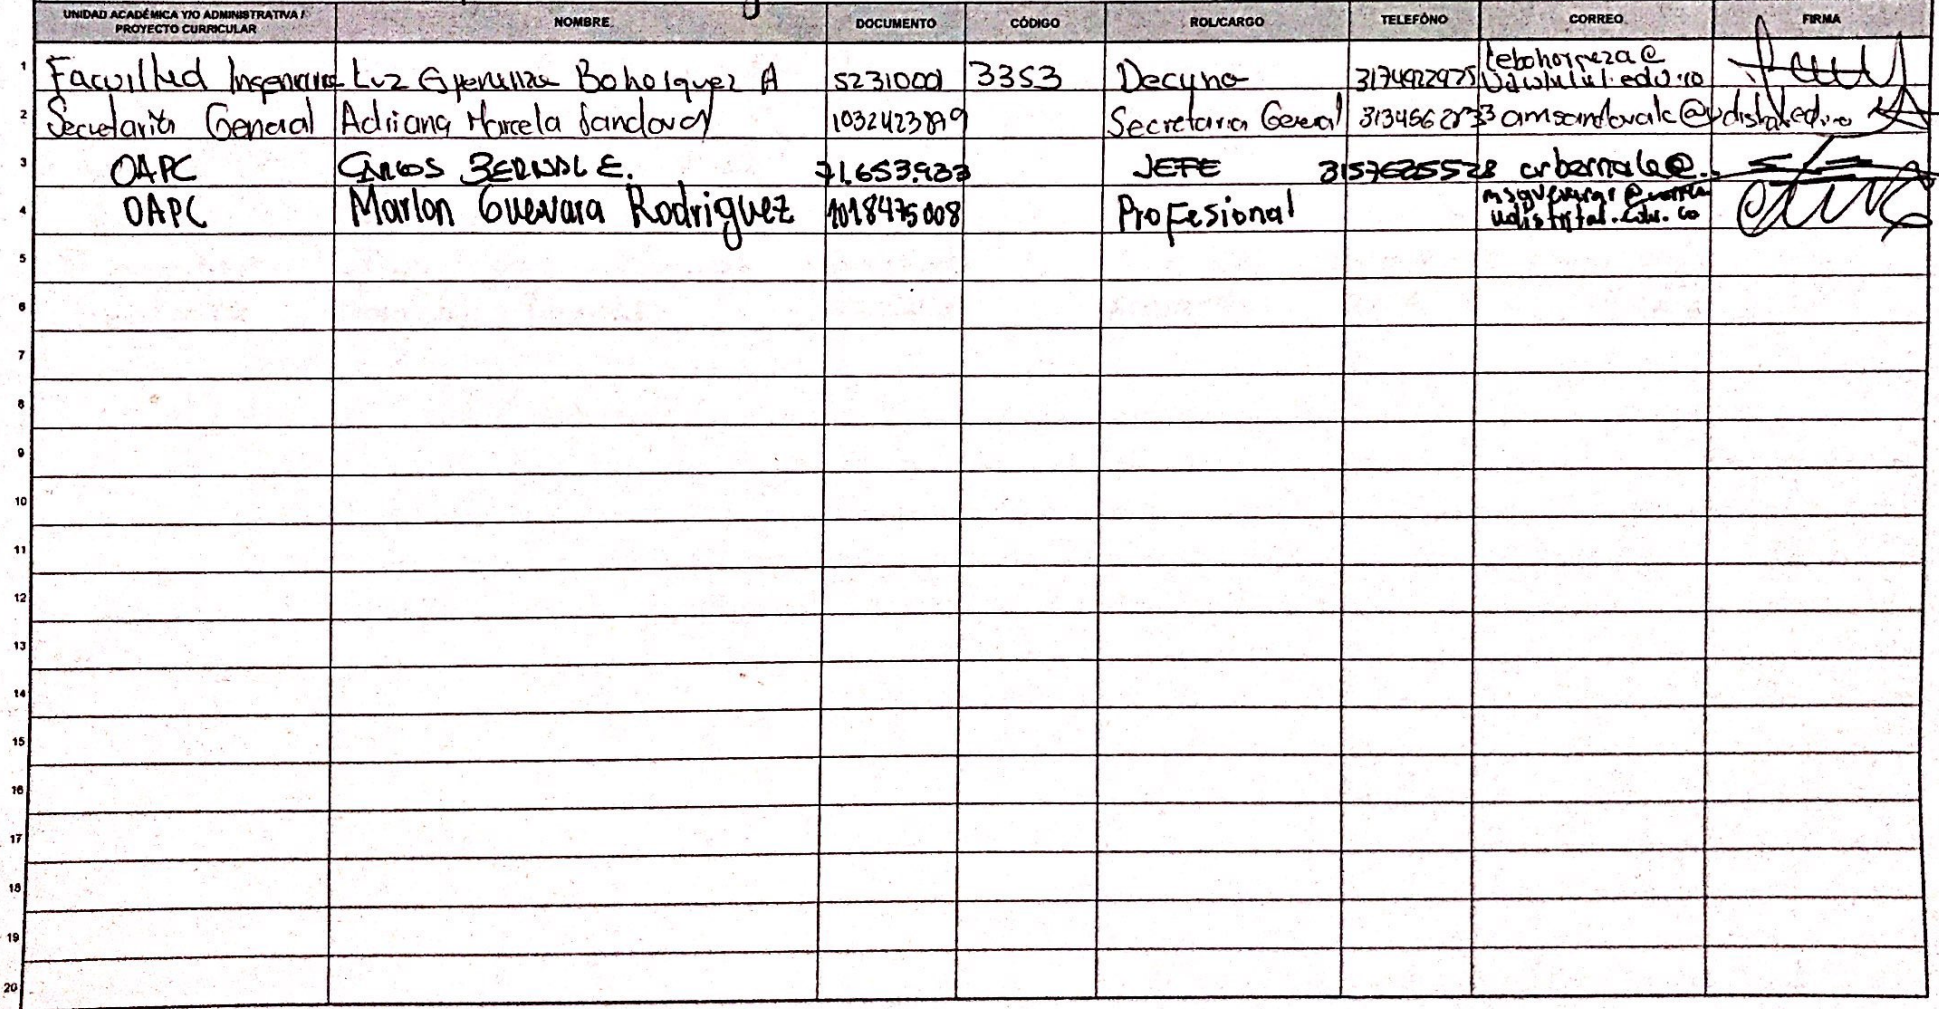 UNIDAD ACADÉMICA Y/O ADMINISTRATIVA / PROYECTO CURRICULAR NOMBRE DOCUMENTO CÓDIGO ROL/CARGO TELEFÓNO CORREO FIRMA
1 Facultad Ingenieria Luz Esperanza Bohorquez A 52310001 3353 Decana 3174922975 lebohorqueza@
udistrital.edu.co
2 Secretaria General Adriana Marcela Sandoval Secretaria General amsandovalc@udistrital.edu.co
3 OAPC CARLOS BERNAL E. 71.653.933 JEFE 3157625528 carbernale@.
4 OAPC Marlon Guevara Rodriguez 1018475008 Profesional
udistrital.edu.co
5
6
7
8
9
10
11
12
13
14
15
16
17
18
19
20